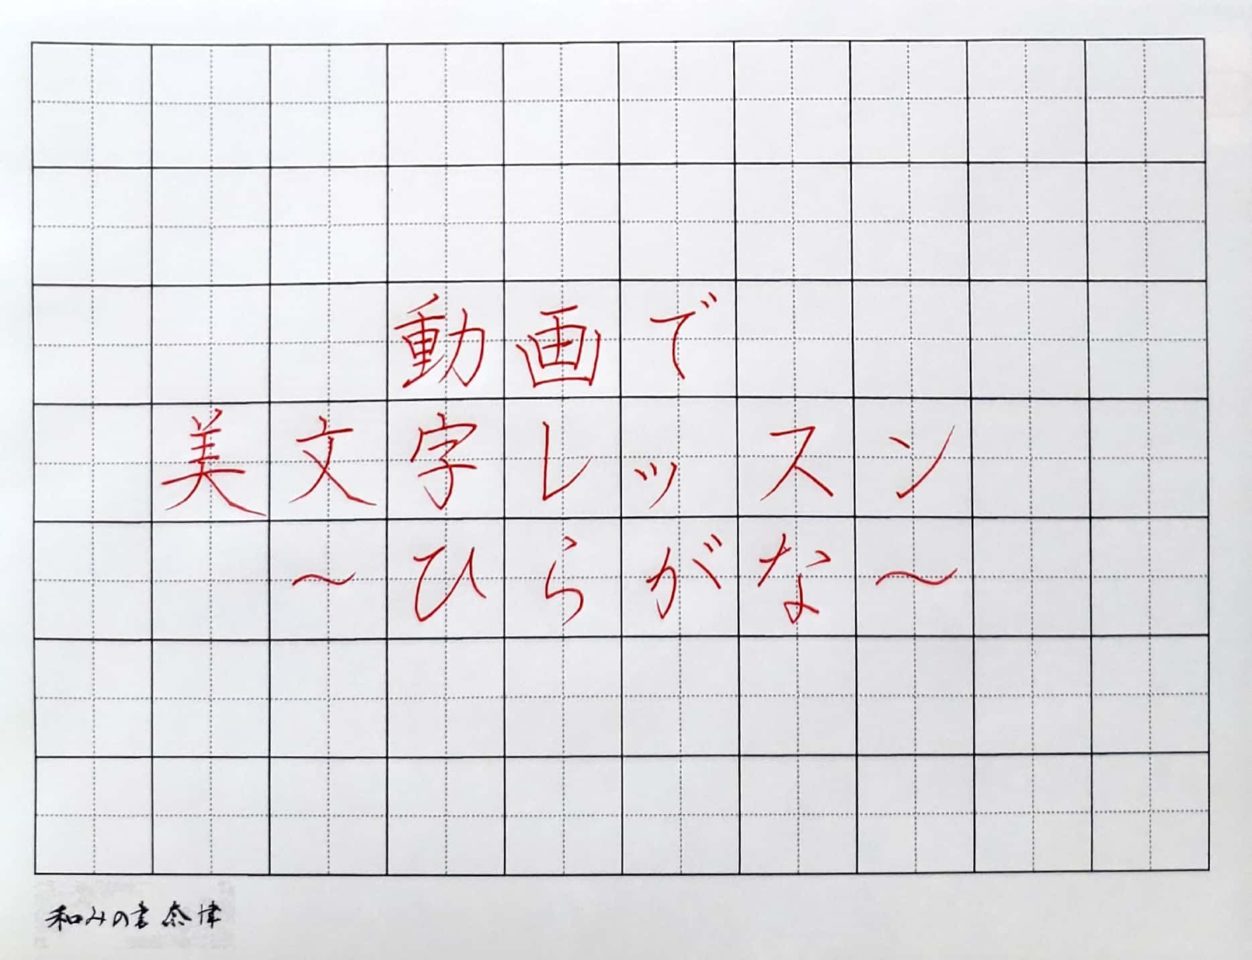 動画で
美文字レッスン
～ひらがな～
和みの書 奈津